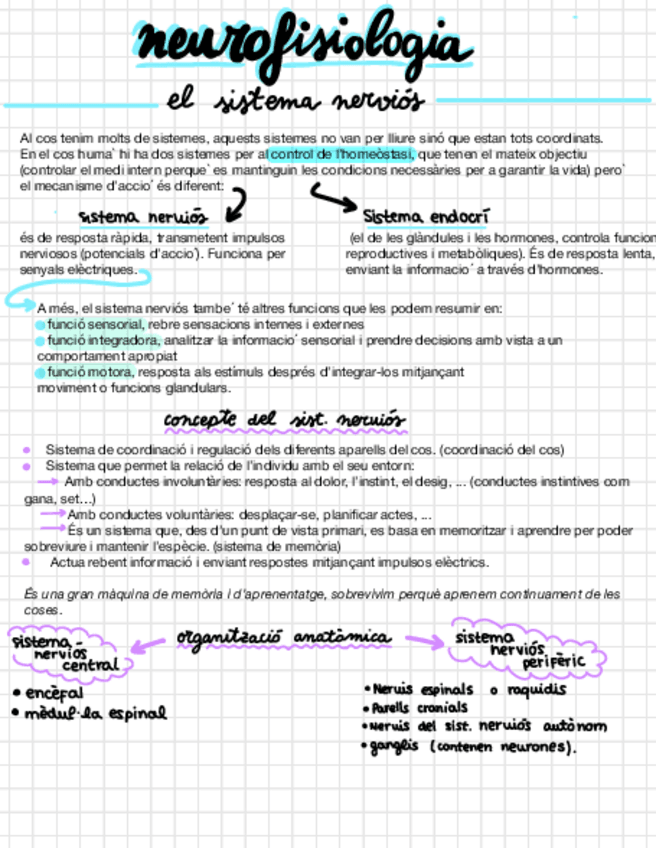 neurofisiologia
el sistema nerviós
Al cos tenim molts de sistemes, aquests sistemes no van per lliure sinó que estan tots coordinats.
En el cos huma` hi ha dos sistemes per al control de l'homeòstasi, que tenen el mateix objectiu
(controlar el medi intern perque` es mantinguin les condicions necessàries per a garantir la vida) pero`
el mecanisme d'accio´ és diferent:
sistema nerviós
és de resposta ràpida, transmetent impulsos
nerviosos (potencials d'accio´). Funciona per
senyals elèctriques.
Sistema endocrí
(el de les glàndules i les hormones, controla funcion
reproductives i metabòliques). És de resposta lenta,
enviant la informacio´ a través d'hormones.
A més, el sistema nerviós tambe´ té altres funcions que les podem resumir en:
funció sensorial, rebre sensacions internes i externes
funció integradora, analitzar la informacio´ sensorial i prendre decisions amb vista a un
comportament apropiat
funció motora, resposta als estímuls després d'integrar-los mitjançant
moviment o funcions glandulars.
concepte del sist. nerviós
Sistema de coordinació i regulació dels diferents aparells del cos. (coordinació del cos)
Sistema que permet la relació de l'individu amb el seu entorn:
Amb conductes involuntàries: resposta al dolor, l'instint, el desig, ... (conductes instintives com
gana, set...)
Amb conductes voluntàries: desplaçar-se, planificar actes, ...
És un sistema que, des d'un punt de vista primari, es basa en memoritzar i aprendre per poder
sobreviure i mantenir l'espècie. (sistema de memòria)
Actua rebent informació i enviant respostes mitjançant impulsos elèctrics.
És una gran màquina de memòria i d'aprenentatge, sobrevivim perquè aprenem contínuament de les
coses.
organització anatòmica
sistema
nerviós
central
• encèfal
• mèdul·la espinal
sistema
nerviós
perifèric
• Nervis espinals o raquidis
• Parells cranials
• Nervis del sist. nerviós autònom
• ganglis (contenen neurones).